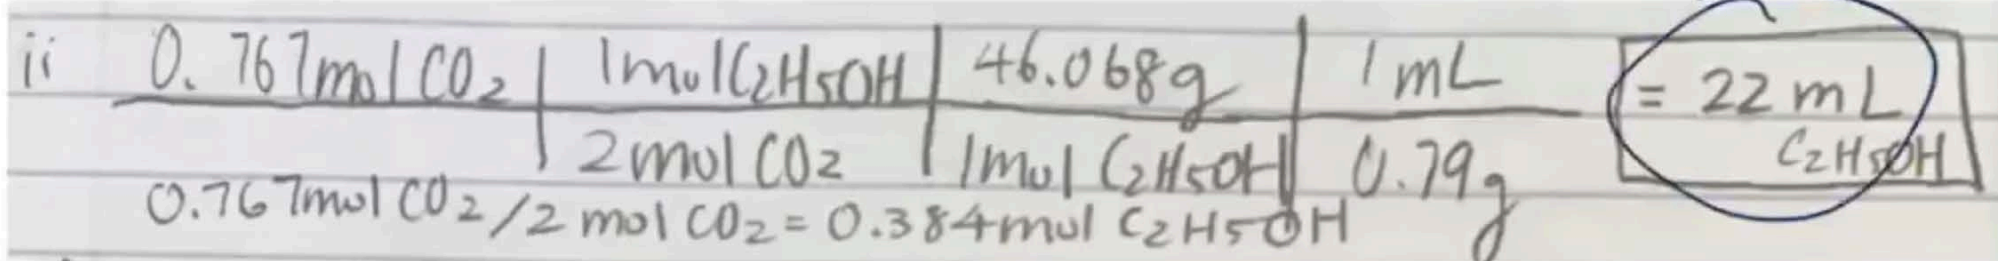 ii 0.767mol CO₂ | 1mol C₂H₅OH | 46.068g | 1 mL = 22 mL
2 mol CO₂ | 1mol C₂H₅OH | 0.79g C₂H₅OH
0.767mol CO₂/2 mol CO₂ = 0.384mol C₂H₅OH